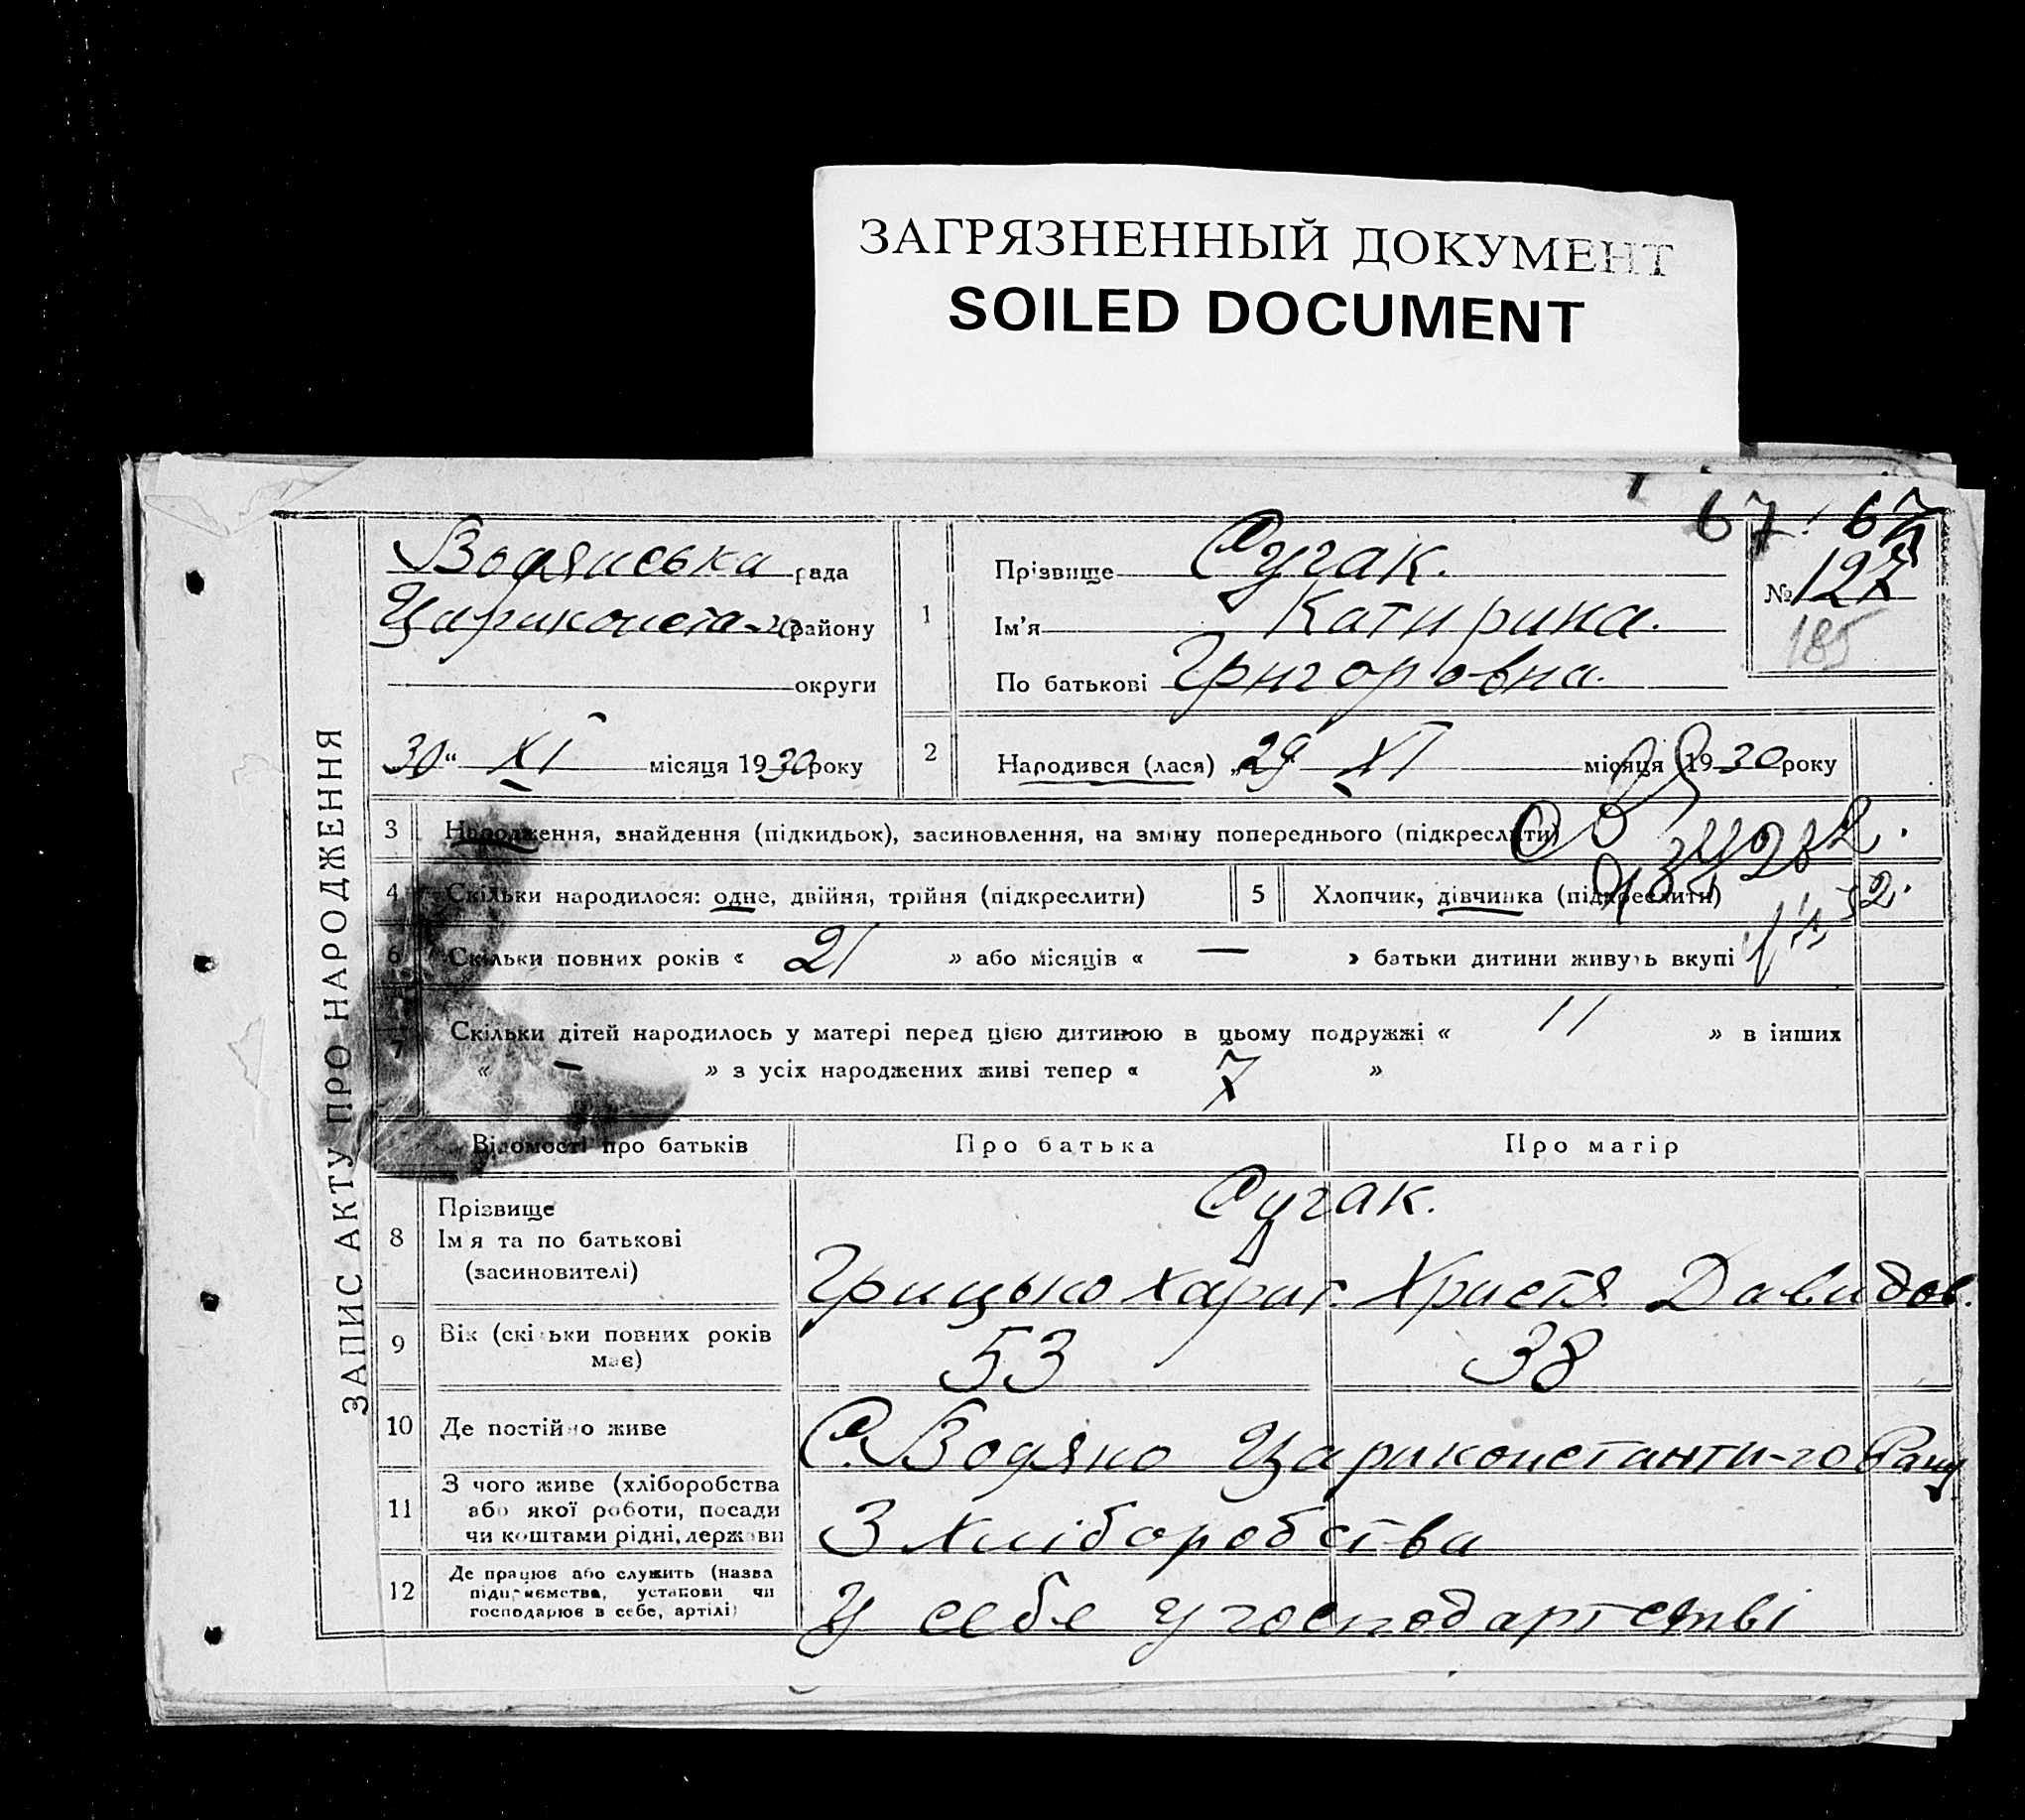 ЗАГРЯЗНЕННЫЙ ДОКУМЕНТ
SOILED DOCUMENT
67 67
ЗАПИС АКТУ ПРО НАРОДЖЕННЯ
Водянська рада
Цариконста-го району
округи
30 " XI місяця 1930 року
1
Прізвище Сугак.
Ім'я Катирина.
По батькові Григоровна.
№ 127
185
2 Народився (лася) „29" XI місяця 1930 року
3 Народження, знайдення (підкидьок), засиновлення, на зміну попереднього (підкреслити)
4 Скільки народилося: одне, двійня, трійня (підкреслити)
5 Хлопчик, дівчинка (підкреслити)
6 Скільки повних років « 21 » або місяців « — » батьки дитини живуть вкупі
7 Скільки дітей народилось у матері перед цією дитиною в цьому подружжі « 11 » в інших
« — » з усіх народжених живі тепер « 7 »
Відомості про батьків Про батька Про матір
8 Прізвище Сугак.
Ім'я та по батькові
(засиновителі) Грицько Харит. Христя Давидов.
9 Вік (скільки повних років
має) 53 38
10 Де постійно живе С. Водяно Цариконстанти-го
11 З чого живе (хліборобства
або якої роботи, посади
чи коштами рідні, держави З хліборобства
12 Де працює або служить (назва
підприємства, установи чи
господарює в себе, артілі) У себе у господартстві